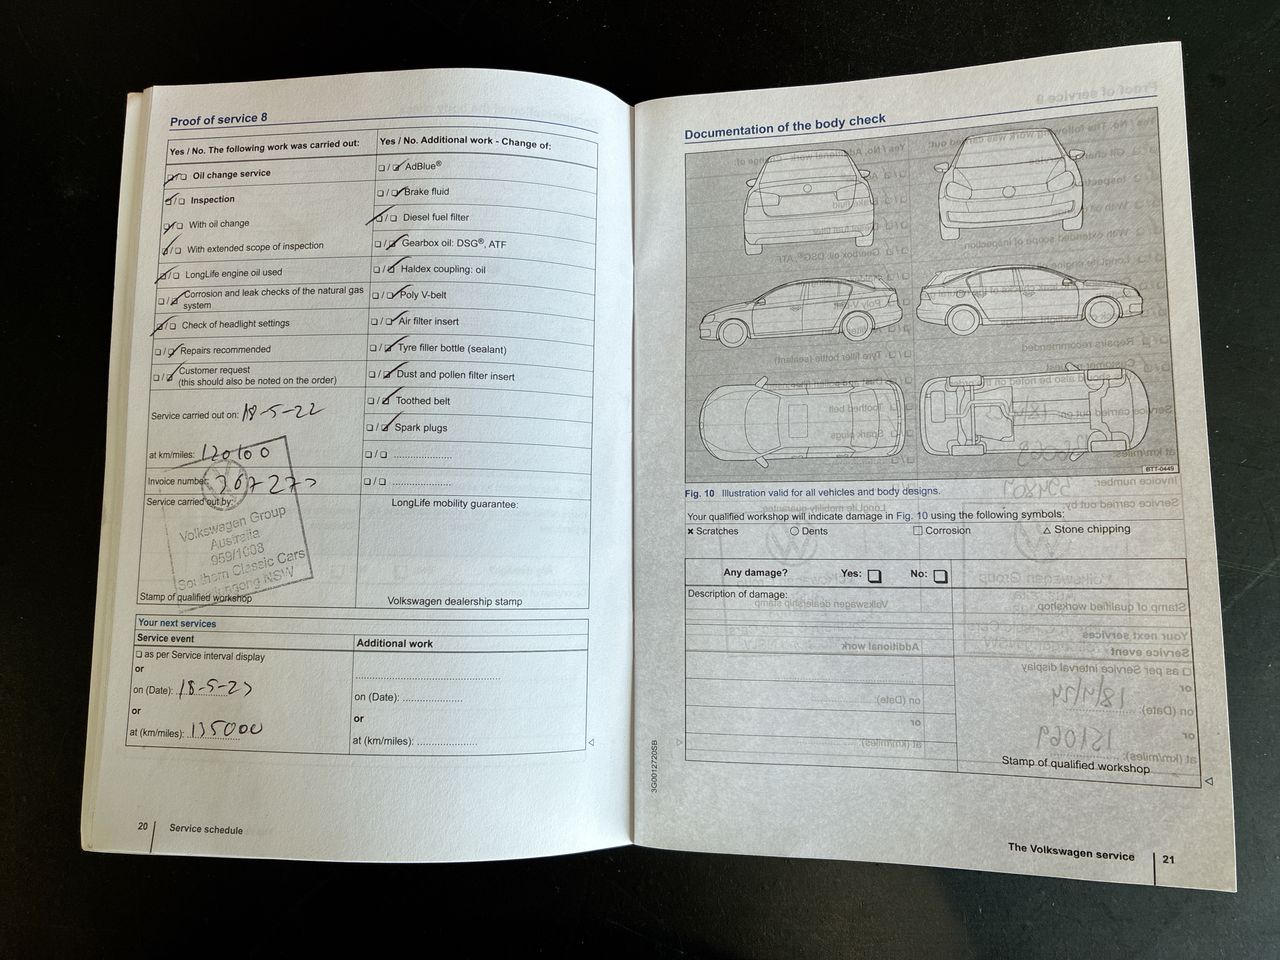 Proof of service 8
Yes / No. The following work was carried out:
Yes / No. Additional work - Change of:
☑/☐ Oil change service
☑/☐ Inspection
☑/☐ With oil change
☑/☐ With extended scope of inspection
☑/☐ LongLife engine oil used
☐/☑ Corrosion and leak checks of the natural gas
system
☑/☐ Check of headlight settings
☐/☑ Repairs recommended
☐/☑ Customer request
(this should also be noted on the order)
Service carried out on: 18-5-22
at km/miles: 120100
Invoice number:
Service carried out by:
Volkswagen Group
Australia
959/1008
Southern Classic Cars
NSW
Stamp of qualified workshop
☐/☑ AdBlue®
☐/☑ Brake fluid
☑/☐ Diesel fuel filter
☐/☑ Gearbox oil: DSG®, ATF
☐/☑ Haldex coupling: oil
☐/☑ Poly V-belt
☐/☑ Air filter insert
☐/☑ Tyre filler bottle (sealant)
☐/☑ Dust and pollen filter insert
☐/☑ Toothed belt
☐/☑ Spark plugs
☐/☐ ......................
☐/☐ ......................
LongLife mobility guarantee:
Volkswagen dealership stamp
Your next services
Service event
☐ as per Service interval display
or
on (Date): 18-5-23
or
at (km/miles): 135000
Additional work
on (Date): ....................
or
at (km/miles): ....................
20 Service schedule
Documentation of the body check
BTT-0449
Fig. 10 Illustration valid for all vehicles and body designs.
Your qualified workshop will indicate damage in Fig. 10 using the following symbols:
× Scratches ○ Dents □ Corrosion △ Stone chipping
Any damage? Yes: ☐ No: ☐
Description of damage:
Stamp of qualified workshop
3G0012720SB
The Volkswagen service 21